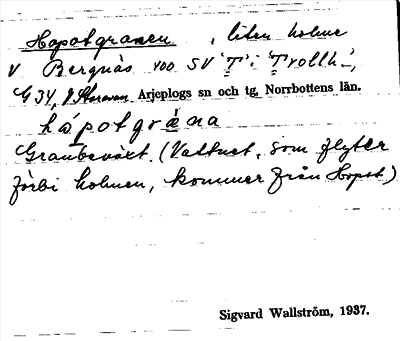 Hopotgranen, liten holme
V Bergnäs 400 SV 'T' i 'Trollh-',
G 34, J Storavan Arjeplogs sn och tg, Norrbottens län.
hápotgrána
Granbeväxt. (Vattnet, som flyter
förbi holmen, kommer från Hopot)
Sigvard Wallström, 1937.